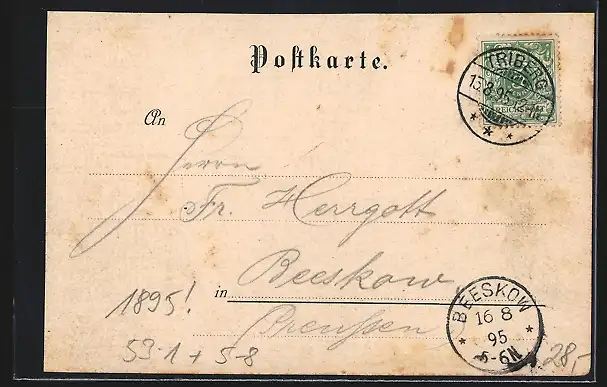 Postkarte.
TRIBERG
15.8.95
REICHSPOST
An
Herrn
Fr. Herrgott
in Beeskow
Preussen
1895!
53-1 + 5-8
BEESKOW
16 8
95
5-6N
28,-